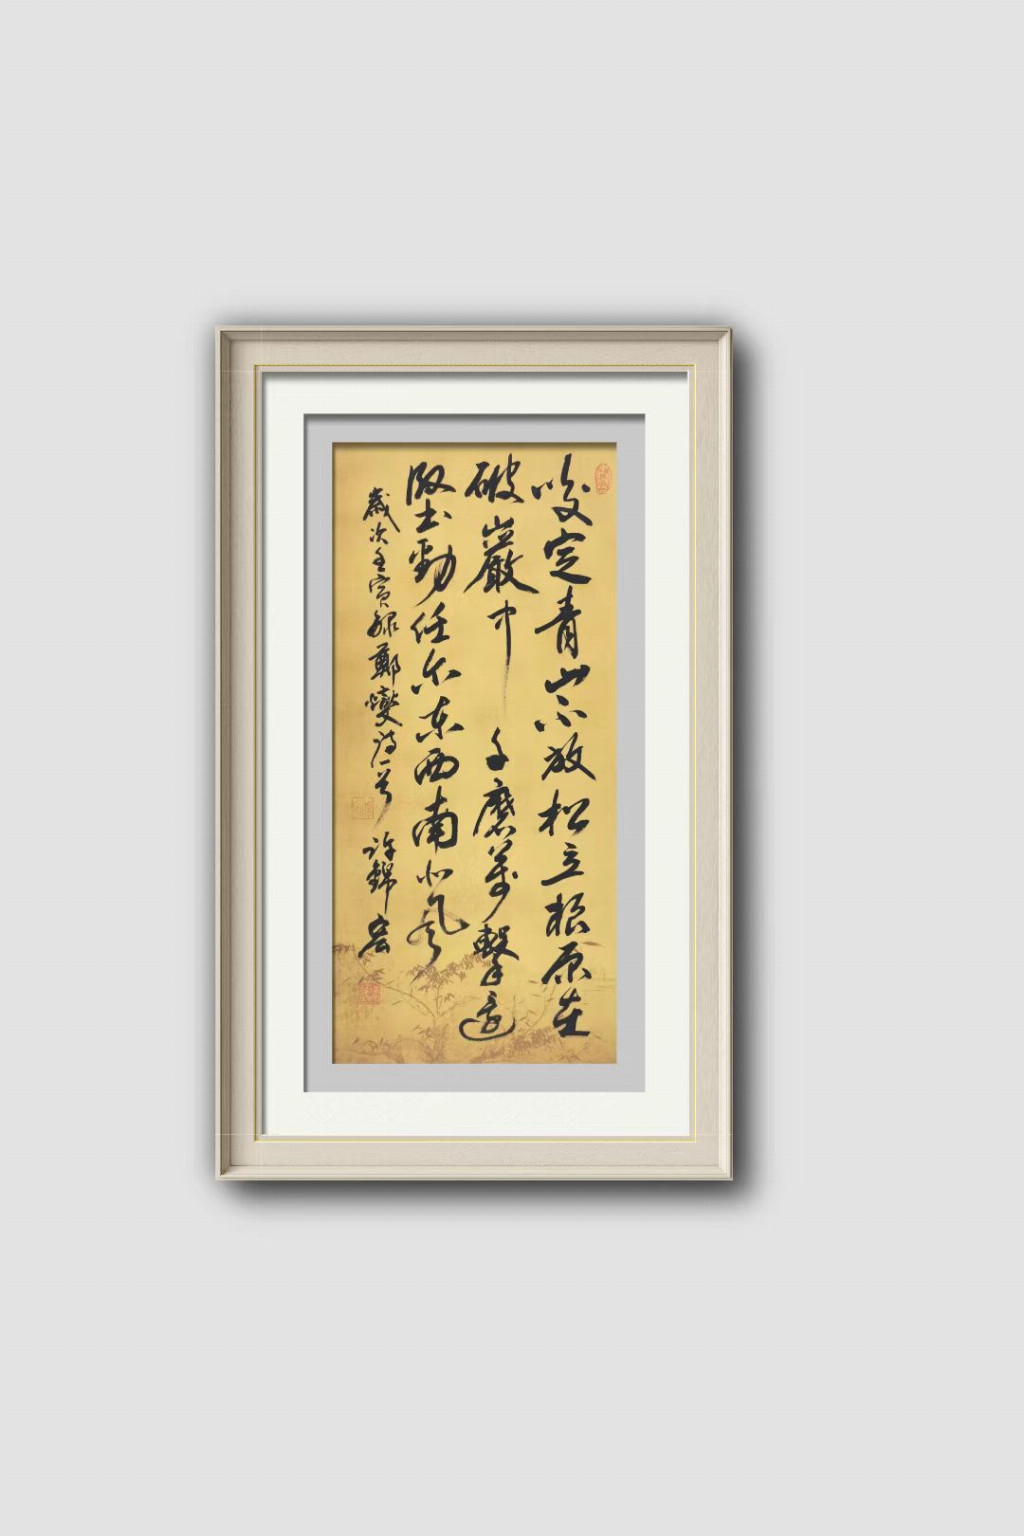 咬定青山不放松立根原在
破巖中千磨萬擊還
堅土勁任尔东西南北風
歲次壬寅録鄭燮詩一首
許錦宏